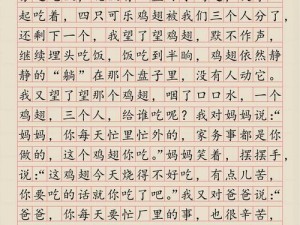 起吃着，四只可乐鸡翅被我们三个人分了，
还剩下一个，我望了望鸡翅，默不作声，
继续埋头吃饭，饭吃到半晌，鸡翅依然静
静的“躺”在那个盘子里，没有人动它。
我又望了望那个鸡翅，咽了口口水，一个
鸡翅，三个人，给谁吃呢？我对妈妈说：“
妈妈，你每天忙里忙外的，家务事都是你
做的，这个鸡翅你吃。”妈妈笑着，摆摆手，
说：“这鸡翅今天烧得不好吃，有点儿苦，
你要吃的话就你吃了吧。”我又对爸爸说：“
爸爸，你每天要忙厂里的事，也很辛苦，